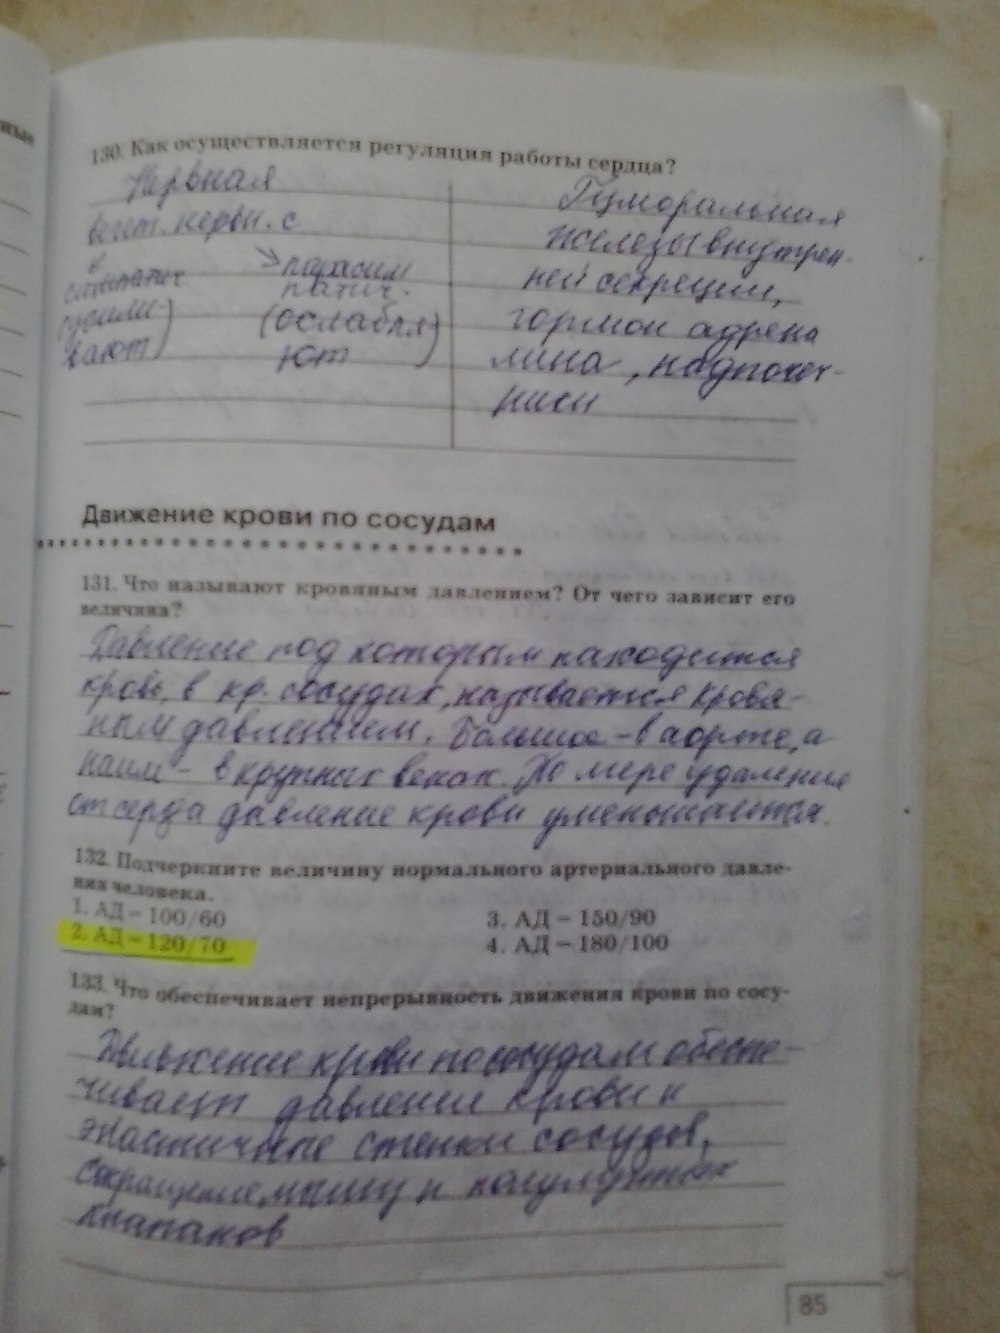 ные
130. Как осуществляется регуляция работы сердца?
Нервная
вегет. нервн. с
симпатич
(усили-)
вают
парасим
патич.
(ослабля)
ют
Гуморальная
железы внутрен-
ней секреции,
гормон адрена
лина, надпочеч-
ники
Движение крови по сосудам
131. Что называют кровяным давлением? От чего зависит его
величина?
Давление под которым находится
кровь, в кр. сосудах, называется кровя-
ным давлением. Большое - в аорте, а
наим - в крупных венах. По мере удаления
от серда давление крови уменьшается.
132. Подчеркните величину нормального артериального давле-
ния человека.
1. АД – 100/60
2. АД – 120/70
3. АД – 150/90
4. АД – 180/100
133. Что обеспечивает непрерывность движения крови по сосу-
дам?
Движение крови по сосудам обеспе-
чивает давление крови и
эластичные стенки сосудов,
сокращение мышц и полулунных
клапанов
85